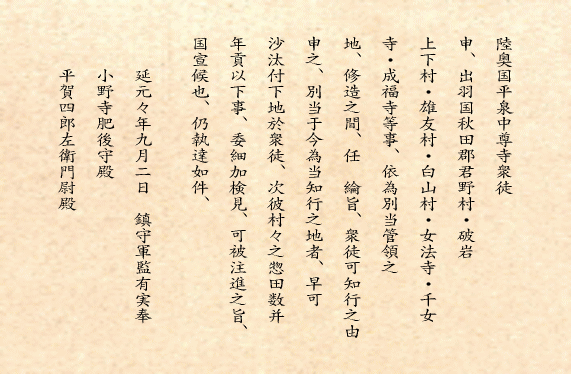 陸奥国平泉中尊寺衆徒
申、出羽国秋田郡君野村・破岩
上下村・雄友村・白山村・女法寺・千女
寺・成福寺等事、依為別当管領之
地、修造之間、任　綸旨、衆徒可知行之由
申之、別当于今為当知行之地者、早可
沙汰付下地於衆徒、次彼村々之惣田数并
年貢以下事、委細加検見、可被注進之旨、
国宣候也、仍執達如件、
延元々年九月二日　鎮守軍監有実奉
小野寺肥後守殿
平賀四郎左衛門尉殿